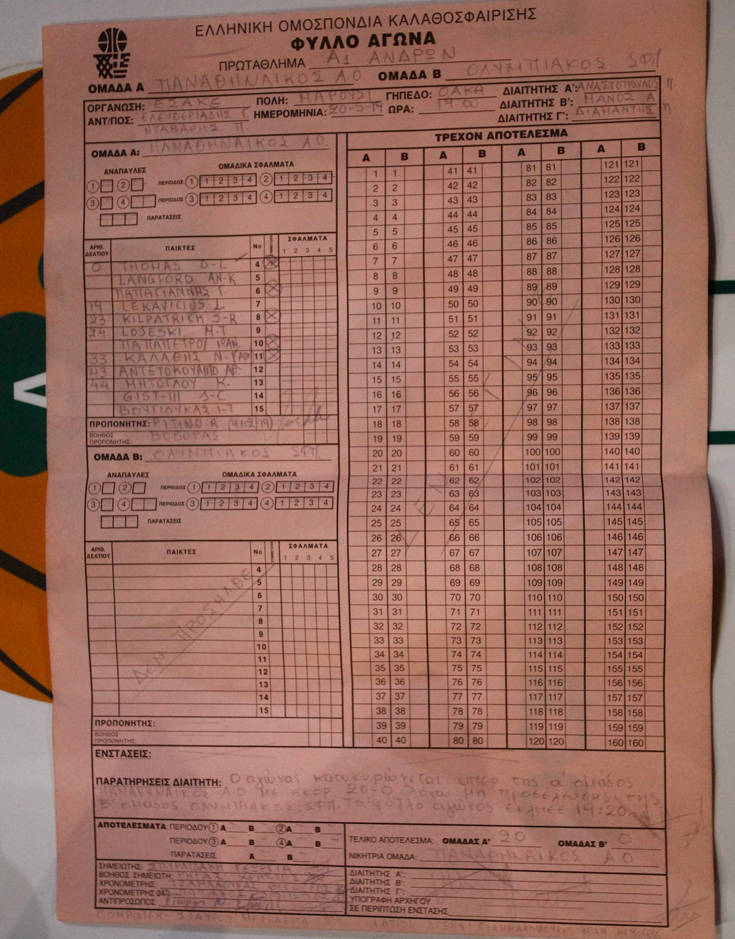 ΕΛΛΗΝΙΚΗ ΟΜΟΣΠΟΝΔΙΑ ΚΑΛΑΘΟΣΦΑΙΡΙΣΗΣ
ΦΥΛΛΟ ΑΓΩΝΑ
ΠΡΩΤΑΘΛΗΜΑ Α1 ΑΝΔΡΩΝ
ΟΜΑΔΑ Α ΠΑΝΑΘΗΝΑΙΚΟΣ Α.Ο. ΟΜΑΔΑ Β ΟΛΥΜΠΙΑΚΟΣ ΣΦΠ
ΟΡΓΑΝΩΣΗ: ΕΣΑΚΕ ΠΟΛΗ: ΜΑΡΟΥΣΙ ΓΗΠΕΔΟ: ΟΑΚΑ ΔΙΑΙΤΗΤΗΣ Α': ΑΝΑΣΤΟΠΟΥΛΟΣ Π
ΑΝΤ/ΠΟΣ: ΕΛΕΥΘΕΡΙΑΔΗΣ ΗΜΕΡΟΜΗΝΙΑ: 20-5-19 ΩΡΑ: 19:00 ΔΙΑΙΤΗΤΗΣ Β': ΜΑΝΟΣ Α
ΝΤΑΒΑΡΗΣ Π. ΔΙΑΙΤΗΤΗΣ Γ': ΔΙΑΜΑΝΤΗΣ
ΟΜΑΔΑ Α: ΠΑΝΑΘΗΝΑΙΚΟΣ Α.Ο.
ΑΝΑΠΑΥΛΕΣ ΟΜΑΔΙΚΑ ΣΦΑΛΜΑΤΑ
1 2 ΠΕΡΙΟΔΟΣ 1 1 2 3 4 2 1 2 3 4
3 4 ΠΕΡΙΟΔΟΣ 3 1 2 3 4 4 1 2 3 4
ΠΑΡΑΤΑΣΕΙΣ
ΑΡΙΘ. ΔΕΛΤΙΟΥ ΠΑΙΚΤΕΣ Νο ΣΦΑΛΜΑΤΑ
1 2 3 4 5
0 THOMAS D-L 4
LANGFORD AN-K 5
ΠΑΠΑΓΙΑΝΝΗΣ Γ. 6
19 LEKAVICIUS L 7
23 KILPATRICK S-R 8
24 LOJESKI M-T 9
ΠΑΠΑΠΕΤΡΟΥ ΙΩΑΝ. 10
33 ΚΑΛΑΘΗΣ Ν- 11
43 ΑΝΤΕΤΟΚΟΥΝΜΠΟ 12
44 ΜΗΤΟΓΛΟΥ Κ. 13
GIST-III J-C 14
ΒΟΥΓΙΟΥΚΑΣ Ι-Τ 15
ΠΡΟΠΟΝΗΤΗΣ: PITINO R
ΒΟΗΘΟΣ ΠΡΟΠΟΝΗΤΗΣ: ΒΟΒΟΡΑΣ
ΟΜΑΔΑ Β: ΟΛΥΜΠΙΑΚΟΣ ΣΦΠ
ΑΝΑΠΑΥΛΕΣ ΟΜΑΔΙΚΑ ΣΦΑΛΜΑΤΑ
1 2 ΠΕΡΙΟΔΟΣ 1 1 2 3 4 2 1 2 3 4
3 4 ΠΕΡΙΟΔΟΣ 3 1 2 3 4 4 1 2 3 4
ΠΑΡΑΤΑΣΕΙΣ
ΑΡΙΘ. ΔΕΛΤΙΟΥ ΠΑΙΚΤΕΣ Νο ΣΦΑΛΜΑΤΑ
1 2 3 4 5
4
5
6
7
8
9
10
11
12
13
14
15
ΔΕΝ ΠΡΟΣΗΛΘΕ
ΠΡΟΠΟΝΗΤΗΣ:
ΒΟΗΘΟΣ ΠΡΟΠΟΝΗΤΗΣ:
ΤΡΕΧΟΝ ΑΠΟΤΕΛΕΣΜΑ
Α Β Α Β Α Β Α Β
1 1 41 41 81 81 121 121
2 2 42 42 82 82 122 122
3 3 43 43 83 83 123 123
4 4 44 44 84 84 124 124
5 5 45 45 85 85 125 125
6 6 46 46 86 86 126 126
7 7 47 47 87 87 127 127
8 8 48 48 88 88 128 128
9 9 49 49 89 89 129 129
10 10 50 50 90 90 130 130
11 11 51 51 91 91 131 131
12 12 52 52 92 92 132 132
13 13 53 53 93 93 133 133
14 14 54 54 94 94 134 134
15 15 55 55 95 95 135 135
16 16 56 56 96 96 136 136
17 17 57 57 97 97 137 137
18 18 58 58 98 98 138 138
19 19 59 59 99 99 139 139
20 20 60 60 100 100 140 140
21 21 61 61 101 101 141 141
22 22 62 62 102 102 142 142
23 23 63 63 103 103 143 143
24 24 64 64 104 104 144 144
25 25 65 65 105 105 145 145
26 26 66 66 106 106 146 146
27 27 67 67 107 107 147 147
28 28 68 68 108 108 148 148
29 29 69 69 109 109 149 149
30 30 70 70 110 110 150 150
31 31 71 71 111 111 151 151
32 32 72 72 112 112 152 152
33 33 73 73 113 113 153 153
34 34 74 74 114 114 154 154
35 35 75 75 115 115 155 155
36 36 76 76 116 116 156 156
37 37 77 77 117 117 157 157
38 38 78 78 118 118 158 158
39 39 79 79 119 119 159 159
40 40 80 80 120 120 160 160
ΕΝΣΤΑΣΕΙΣ:
ΠΑΡΑΤΗΡΗΣΕΙΣ ΔΙΑΙΤΗΤΗ: Ο αγώνας κατακυρώνεται υπέρ της α' ομάδος
ΠΑΝΑΘΗΝΑΙΚΟΣ Α.Ο με σκορ 20-0 λόγω μη προσέλευσης της
Β' ομάδος ΟΛΥΜΠΙΑΚΟΣ ΣΦΠ. Το φύλλο αγώνος έκλεισε 19:20
ΑΠΟΤΕΛΕΣΜΑΤΑ ΠΕΡΙΟΔΟΥ 1 Α Β 2 Α Β
ΠΕΡΙΟΔΟΥ 3 Α Β 4 Α Β
ΠΑΡΑΤΑΣΕΙΣ Α Β
ΤΕΛΙΚΟ ΑΠΟΤΕΛΕΣΜΑ: ΟΜΑΔΑΣ Α' 20 ΟΜΑΔΑΣ Β' 0
ΝΙΚΗΤΡΙΑ ΟΜΑΔΑ: ΠΑΝΑΘΗΝΑΙΚΟΣ Α.Ο.
ΣΗΜΕΙΩΤΗΣ:
ΒΟΗΘΟΣ ΣΗΜΕΙΩΤΗ:
ΧΡΟΝΟΜΕΤΡΗΣ:
ΧΡΟΝΟΜΕΤΡΗΣ 24":
ΑΝΤΙΠΡΟΣΩΠΟΣ:
ΔΙΑΙΤΗΤΗΣ Α':
ΔΙΑΙΤΗΤΗΣ Β':
ΔΙΑΙΤΗΤΗΣ Γ':
ΥΠΟΓΡΑΦΗ ΑΡΧΗΓΟΥ
ΣΕ ΠΕΡΙΠΤΩΣΗ ΕΝΣΤΑΣΗΣ: